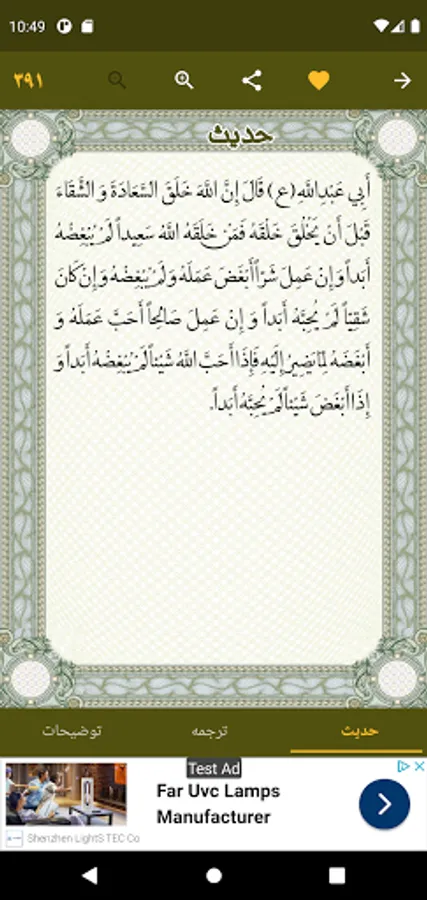 10:49
۳۹۱
حدیث
أَبِي عَبْدِاللَّهِ (ع) قَالَ إِنَّ اللَّهَ خَلَقَ السَّعَادَةَ وَ الشَّقَاءَ
قَبْلَ أَن يَخْلُقَ خَلْقَهُ فَمَنْ خَلَقَهُ اللَّهُ سَعِيداً لَمْ يُبْغِضْهُ
أَبَداً وَ إِنْ عَمِلَ شَرّاً أَبْغَضَ عَمَلَهُ وَ لَمْ يُبْغِضْهُ وَ إِنْ كَانَ
شَقِيّاً لَمْ يُحِبَّهُ أَبَداً وَ إِن عَمِلَ صَالِحاً أَحَبَّ عَمَلَهُ وَ
أَبْغَضَهُ لِمَا يَصِيرُ إِلَيْهِ فَإِذَا أَحَبَّ اللَّهُ شَيْئاً لَمْ يُبْغِضْهُ أَبَداً وَ
إِذَا أَبْغَضَ شَيْئاً لَمْ يُحِبَّهُ أَبَداً.
حدیث
ترجمه
توضیحات
Test Ad
Far Uvc Lamps
Manufacturer
Shenzhen LightS TEC Co